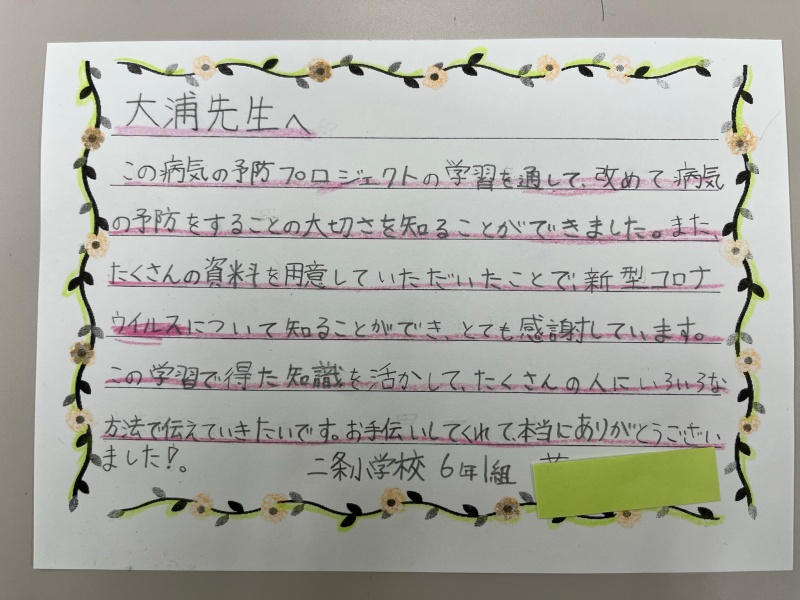 大浦先生へ
この病気の予防プロジェクトの学習を通して、改めて病気
の予防をすることの大切さを知ることができました。また、
たくさんの資料を用意していただいたことで、新型コロナ
ウイルスについて知ることができ、とても感謝しています。
この学習で得た知識を活かして、たくさんの人にいろいろな
方法で伝えていきたいです。お手伝いしてくれて、本当にありがとうござい
ました!。
二条小学校 6年1組